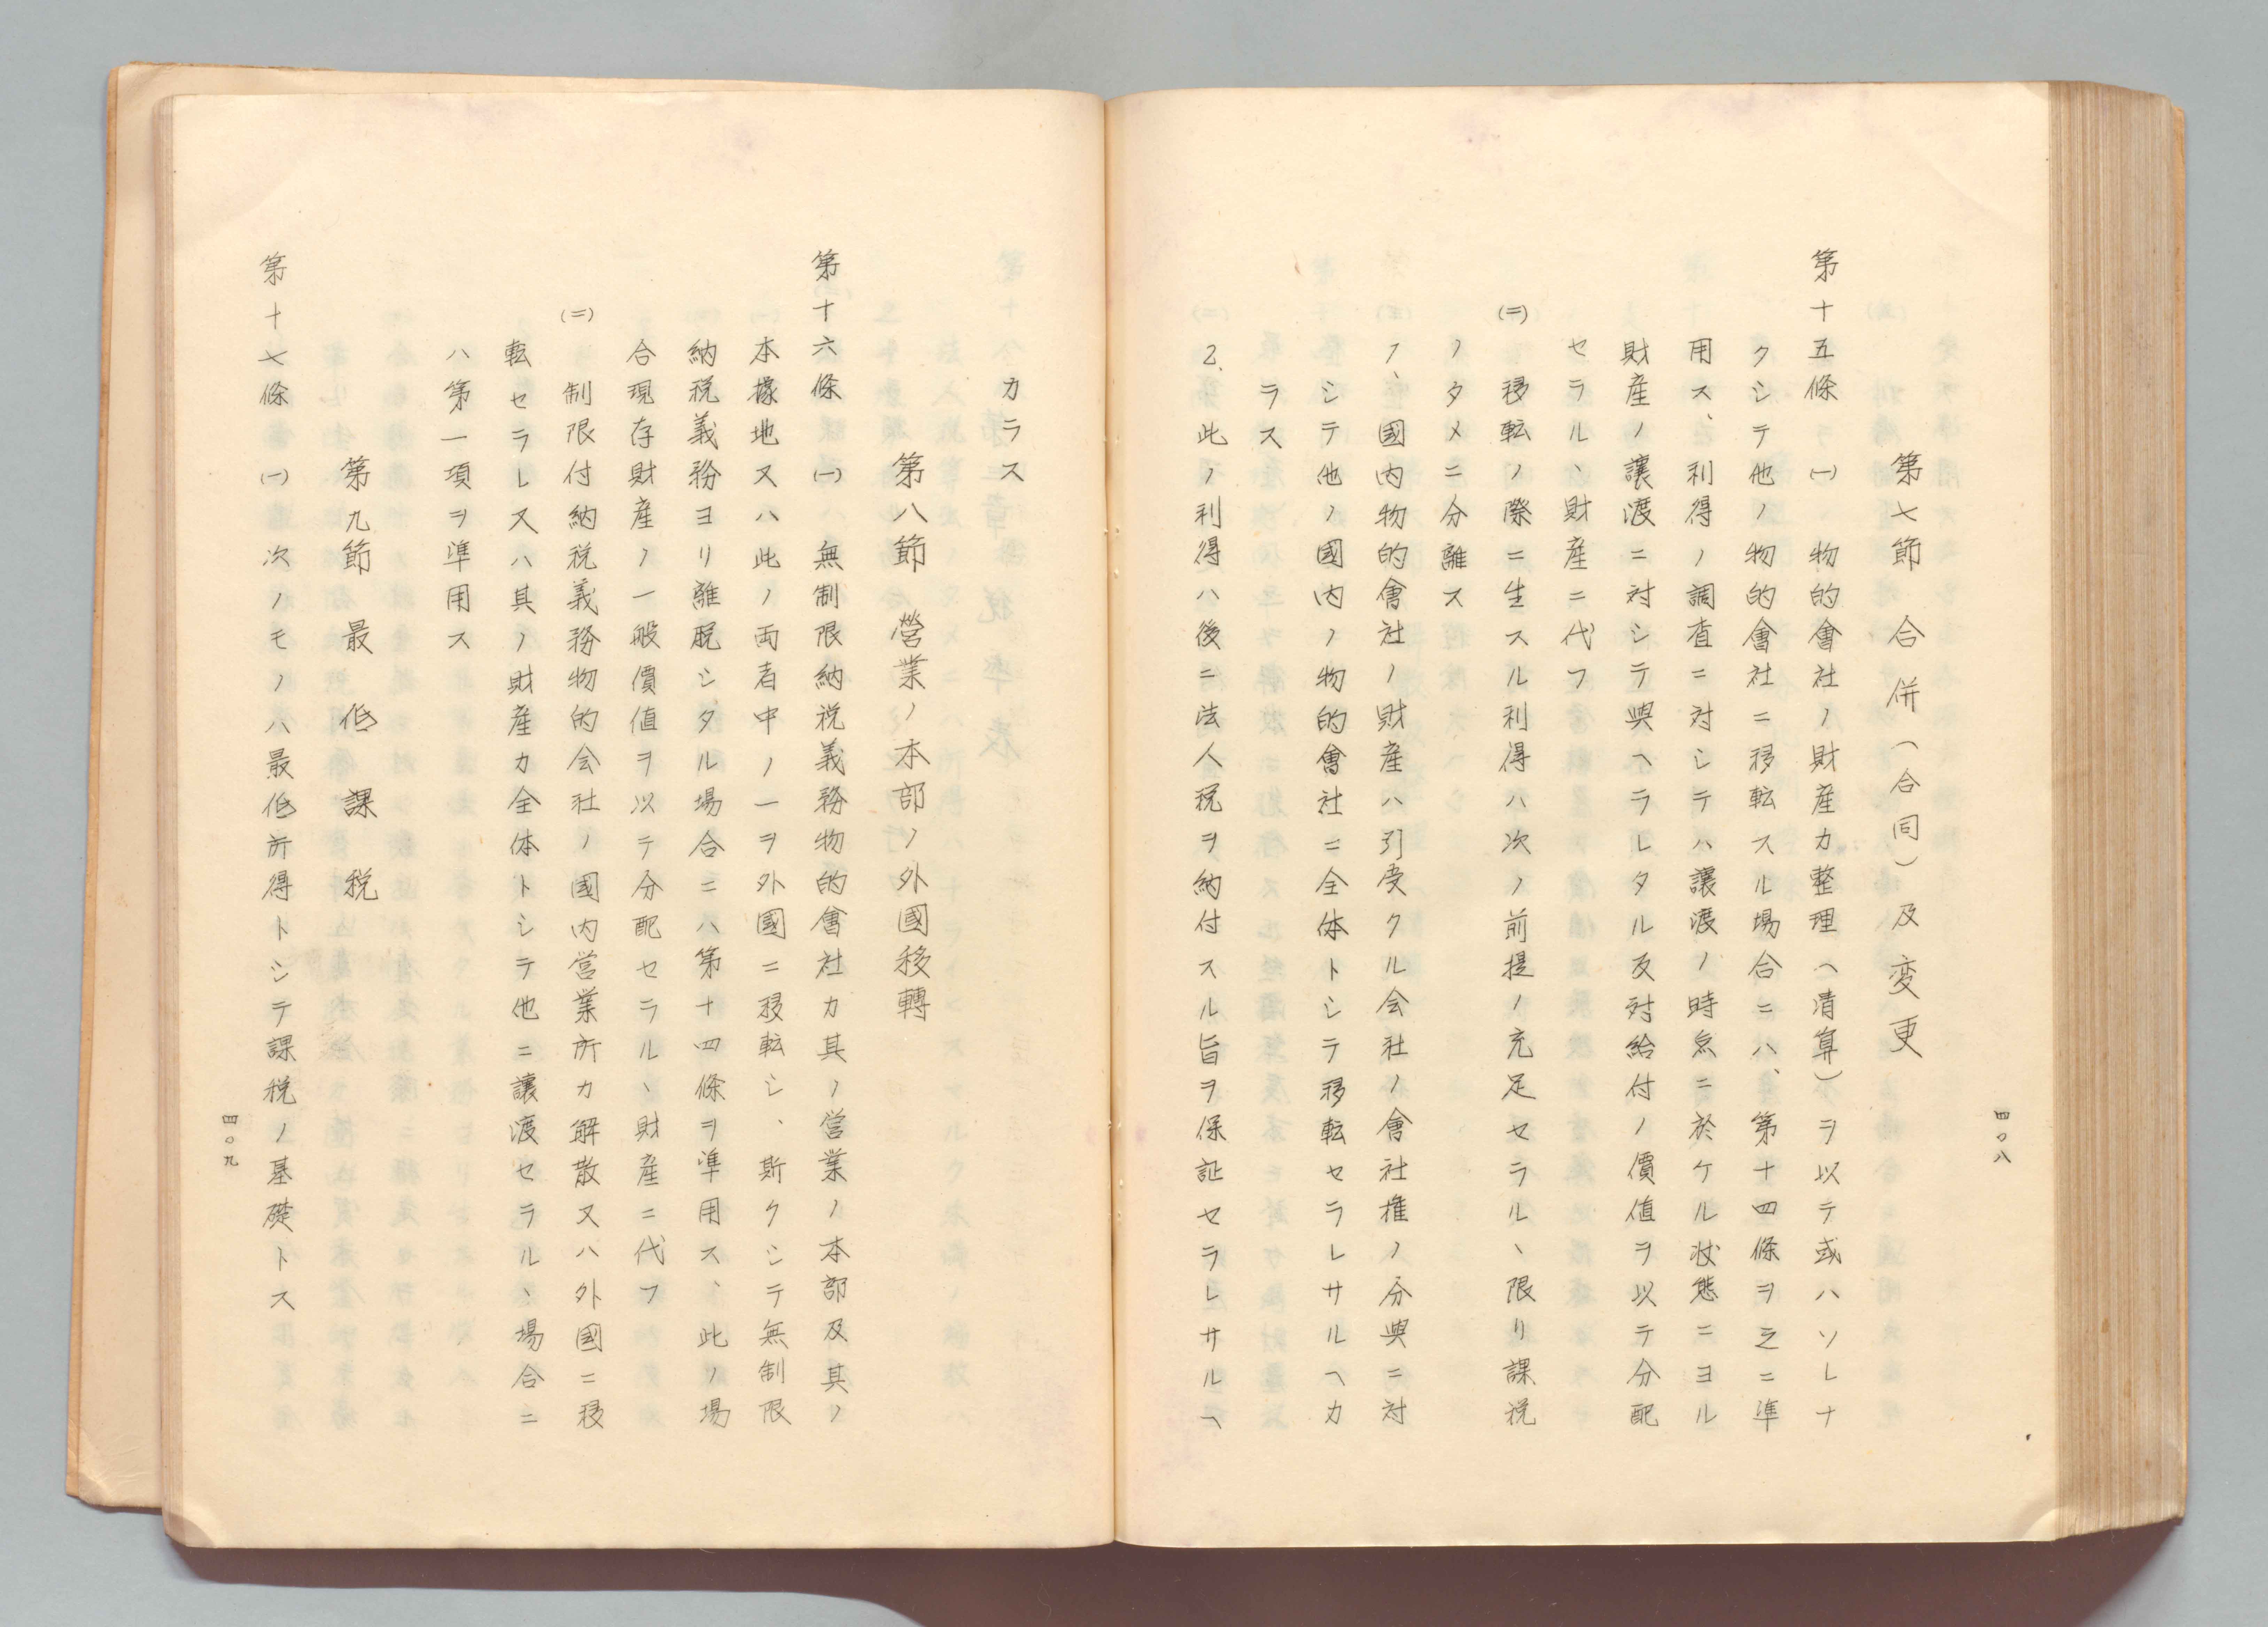 四〇八
第七節　合併（合同）及変更
第十五條　㈠　物的會社ノ財産カ整理（清算）ヲ以テ或ハソレナ
クシテ他ノ物的會社ニ移転スル場合ニハ、第十四條ヲ之ニ準
用ス、利得ノ調査ニ対シテハ讓渡ノ時点ニ於ケル状態ニヨル
財産ノ讓渡ニ対シテ與ヘラレタル反対給付ノ價値ヲ以テ分配
セラルヽ財産ニ代フ
㈡　移転ノ際ニ生スル利得ハ次ノ前提ノ充足セラルヽ限リ課税
ノタメニ分離ス
1、國内物的會社ノ財産ハ引受クル会社ノ會社権ノ分與ニ対
シテ他ノ國内ノ物的會社ニ全体トシテ移転セラレサルヘカ
ラス
2、此ノ利得ハ後ニ法人税ヲ納付スル旨ヲ保証セラレサルヘ
カラス
第八節　營業ノ本部ノ外國移轉
第十六條　㈠　無制限納税義務物的會社カ其ノ営業ノ本部及其ノ
本據地又ハ此ノ両者中ノ一ヲ外國ニ移転シ、斯クシテ無制限
納税義務ヨリ離脱シタル場合ニハ第十四條ヲ準用ス、此ノ場
合現存財産ノ一般價値ヲ以テ分配セラルヽ財産ニ代フ
㈡　制限付納税義務物的会社ノ國内営業所カ解散又ハ外國ニ移
転セラレ又ハ其ノ財産カ全体トシテ他ニ讓渡セラルヽ場合ニ
ハ第一項ヲ準用ス
第九節　最低課税
第十七條　㈠　次ノモノハ最低所得トシテ課税ノ基礎トス
四〇九